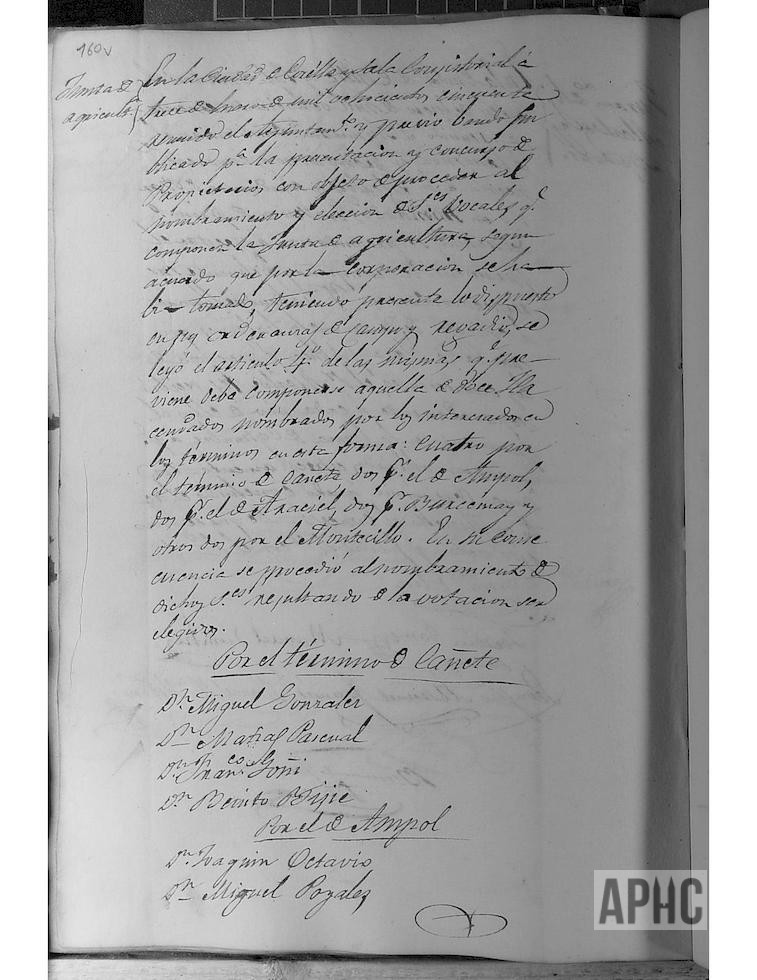 160v
Junta de
agricult.ª
En la Ciudad de Corella y Sala Consistorial á
trece de Enero de mil ochocientos cincuenta
reunido el Ayuntam.to y previo bando pu
blicado p.ª la presentacion y concurso de
Propietarios con objeto de proceder al
nombramiento y eleccion de S.res Vocales q.e
componen la Junta de agricultura, segun
acuerdo que por la corporacion se ha
bia tomado, teniendo presente lo dispuesto
en sus ordenanzas de campo y regadio, se
leyó el articulo 4.º de las mismas q.e pre-
viene debe componerse aquella de doce Ha
cendados nombrados por los interesados en
los términos en esta forma: cuatro por
el término de Cañete, dos p.r el de Ampol,
dos p.r el de Araciel, dos p.r Burcemay y
otros dos por el Montecillo. En su conse
cuencia se procedió al nombramiento de
dichos S.res resultando de la votacion ser
elegidos.
Por el término de Cañete
D.n Miguel Gonzalez
D.n Matias Pascual
D.n Fran.co Goñi
D.n Benito
Por el de Ampol
D.n Joaquin Octavio
D.n Miguel Pozales
APHC